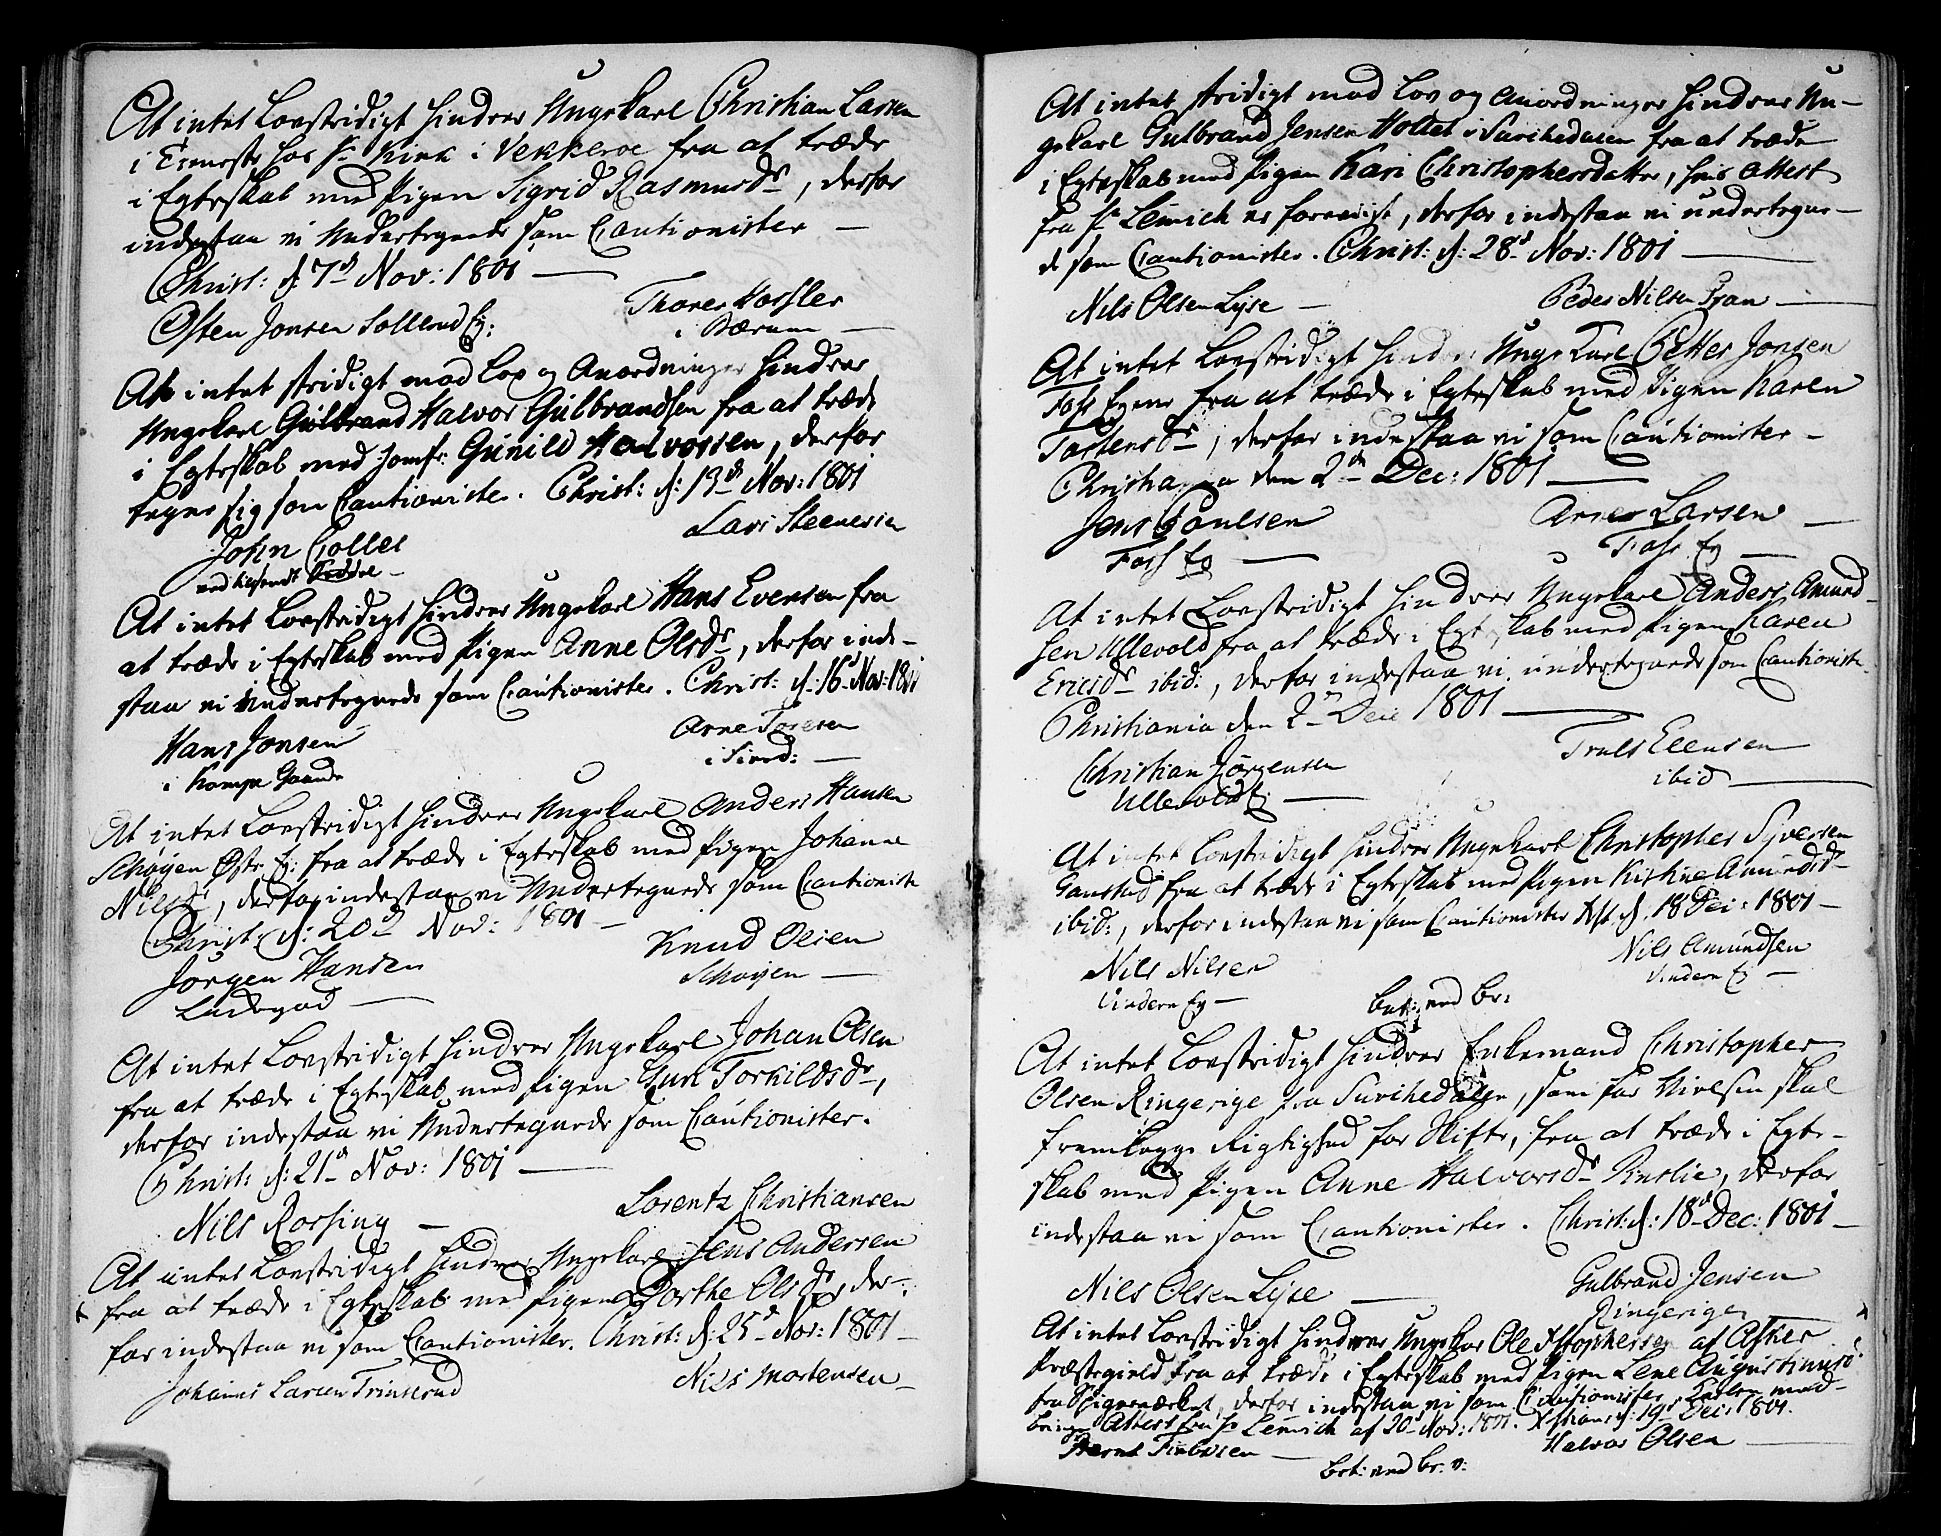 At intet Lovstridigt hindrer Ungekarl Christian Larsen
i Tieneste hos Hr Kink i Vekkeroe fra at træde
i Egteskab med Pigen Sigrid Rasmusdr, derfor
indestaa vi Undertegnede som Cautionister
Christ: d: 7d Nov: 1801
Osten Jonsen Sollerud Eg: Thorer Hassler
i Bærum
At intet stridigt mod Lov og Anordninger hindrer
Ungekarl Gulbrand Halvor Gulbrandsen fra at træde
i Egteskab med Jomfr: Gunild Halvorsen, derfor
tegner sig som Cautionister. Christ: d: 13d Nov: 1801
John Collet Lars Steenersen
ved tilsendt Seddel
At intet Lovstridigt hindrer Ungekarl Hans Evensen fra
at træde i Egteskab med Pigen Anne Olsdr, derfor inde-
staa vi Undertegnede som Cautionister. Christ: d: 16d Nov: 1801
Hans Jonsen Arne Toresen
i Kampe Gaarde ibid:
At intet Lovstridigt hindrer Ungekarl Anders Hansen
Schøyen Østr Eg: fra at træde i Egteskab med Pigen Johanne
Nilsdr, derfor indestaa vi Undertegnede som Cautionister
Christ: d: 20d Nov: 1801
Jørgen Hansen Knud Olsen
Ladegod Schøyen
At intet Lovstridigt hindrer Ungekarl Johan Olsen
fra at træde i Egteskab med Pigen Guri Torkildsdr,
derfor indestaa vi Undertegnede som Cautionister.
Christ: d: 21d Nov: 1801
Nils Rorsing Lorentz Christiansen
At intet Lovstridigt hindrer Ungekarl Jens Andersen
fra at træde i Egteskab med Pigen Dorthe Olsdr, der-
for indestaa vi som Cautionister. Christ: d: 25d Nov: 1801
Johannes Larsen Trinserud Nils Mortensen
At intet stridigt mod Lov og Anordninger hindrer Un-
gekarl Gulbrand Jensen Holtet i Sørchedalen fra at træde
i Egteskab med Pigen Kari Christophersdatter, hvis Attest
fra Hr Lemich er foreviist, derfor indestaa vi undertegne-
de som Cautionister. Christ: d: 28d Nov: 1801
Nils Olsen Lyse Peder Nilsen Tran
At intet Lovstridigt hindrer Ungekarl Petter Jonsen
Foss Egene fra at træde i Egteskab med Pigen Karen
Tostensdr, derfor indestaa vi som Cautionister
Christiania den 2den Dec: 1801
Jens Poulsen Arne Larsen
Foss Eg Foss Eg
At intet Lovstridigt hindrer Ungekarl Anders Amund-
sen Ullevold fra at træde i Egteskab med Pigen Karen
Ericsdr ibid:, derfor indestaa vi undertegnede som Cautionister
Christiania den 2n Dec 1801
Christian Jørgensen Truls Elensen
Ullevold Eg: ibid
At intet Lovstridigt hindrer Ungekarl Christopher Syversen
Gaustad fra at træde i Egteskab med Pigen Kirstine Amundsd
ibid:, derfor indestaa vi som Cautionister Xst. d. 18 Dec: 1801
Nils Nilsen Nils Amundsen
Vindern Eg Vindern Eg
bet: ved br:
At intet Lovstridigt hindrer Enkemand Christopher
Olsen Ringerige fra Sørchedalen, som for Vielsen skal
fremlægge Rigtighed for Skifte, fra at træde i Egte-
skab med Pigen Anne Halvorsdr, derfor
indestaa vi som Cautionister. Christ: d: 18d Dec: 1801
Nils Olsen Lyse Gulbrand Jensen
Ringerige
At intet Lovstridigt hindrer Ungekar Ole Xstophersen af Asker
Præstegield fra at træde i Egteskab med Pigen Lene Augustinusd:
fra Spigerværket, derfor indestaa vi som Cautionister, Karlen med-
bringer Attest fra Hr Lemich af 20 Nov: 1801. Xstian: d: 19d Dec: 1801.
Bernt Halvor Olsen
bet: ved br: v: